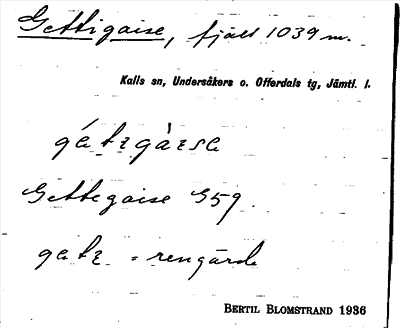 Gettigaise, fjäll 1039 m.
Kalls sn, Undersåkers o. Offerdals tg, Jämtl. l.
Gettegaise G59.
= rengärde
BERTIL BLOMSTRAND 1936